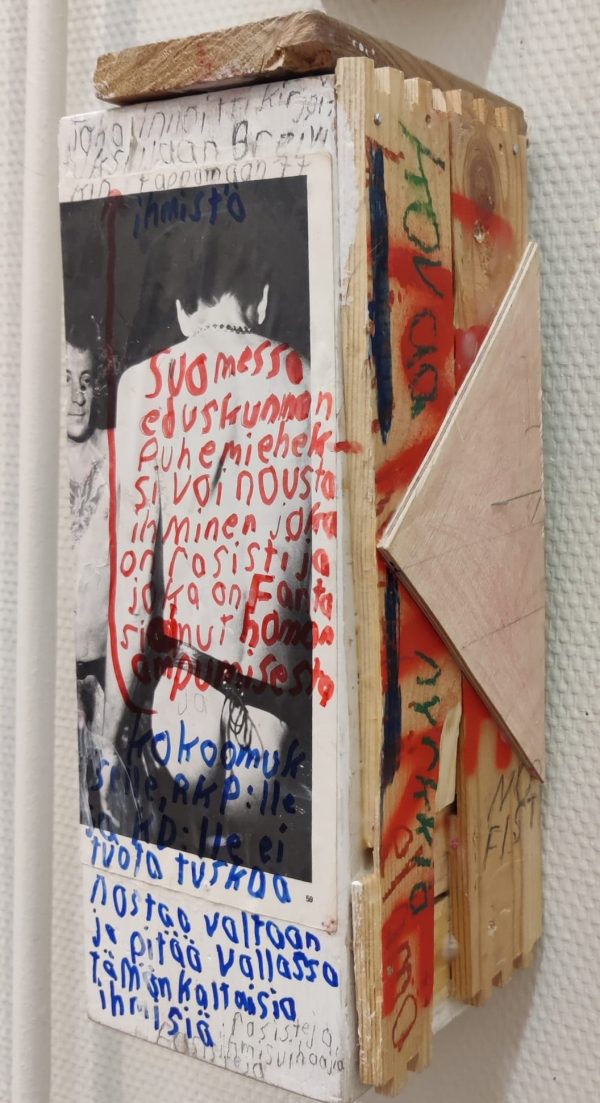 innoitti kir
uksillaan Breivi
kin tappamaan 77
ihmistä
Suomessa
eduskunnan
puhemiehek-
si voi nousta
ihminen joka
on rasisti ja
joka on Fanta
sioinut homon
ampumisesta
ja
kokoomuk
selle, RKP:lle
ja KD:lle ei
tuota tuskaa
nostaa valtaan
ja pitää vallassa
tämänkaltaisia
ihmisiä
rasisteja
ihmisvihaajia
59
nyrkkiä
FIST